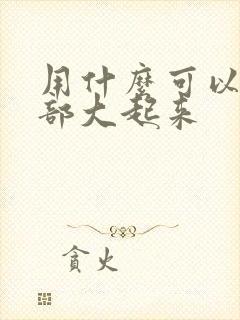 用什麼可以
部大起来
貪火